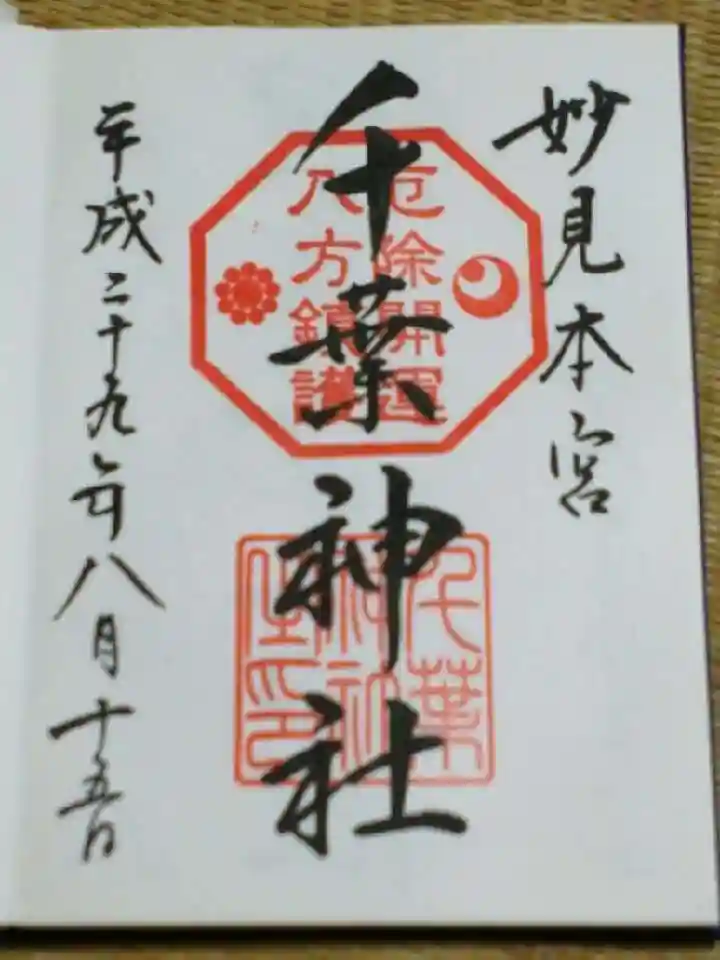 妙見本宮
千葉神社
厄除開運
八方鎮護
千葉
神社
之印
平成二十九年八月十五日